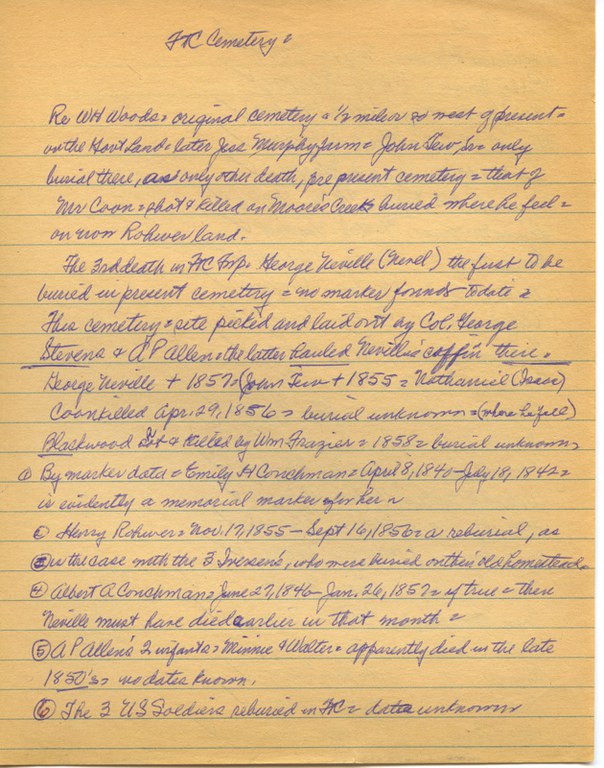 FtC Cemetery =
Re WH Woods = original cemetery = 1/2 mile or so west of present =
on the Govt Land = later Jess Murphy farm = John Tew, Sr = only
burial there, as only other death, pre present cemetery = that of
Mr Coon = shot & killed on Moores Creek buried where he feel =
on now Rohwer land.
The 3rd death in FtC Twp. George Neville (Nevel) the first to be
buried in present cemetery = no marker found = to date =
This cemetery = site picked and laid out by Col. George
Stevens & A P Allen = the latter hauled Neville's coffin there =
George Neville + 1857 = (John Tew + 1855 = Nathaniel (Isaac)
Coon killed Apr. 29, 1856 = burial unknown = (where he fell)
Blackwood & killed by Wm Frazier = 1858 = burial unknown =
① By marker data = Emily H Conchman = April 8, 1840 - July 18, 1842 =
is evidently a memorial marker for her =
Henry Rohwer = Nov. 17, 1855 - Sept 16, 1856 = a reburial, as
③ is the case with the 3 Iversen's, who were buried on their old homestead.
④ Albert A Conchman = June 27, 1846 - Jan. 26, 1857 = if true = then
Neville must have died earlier in that month =
⑤ A P Allen's 2 infants = Minnie & Walter = apparently died in the late
1850's = no dates known.
⑥ The 3 US Soldiers reburied in FtC = date unknown